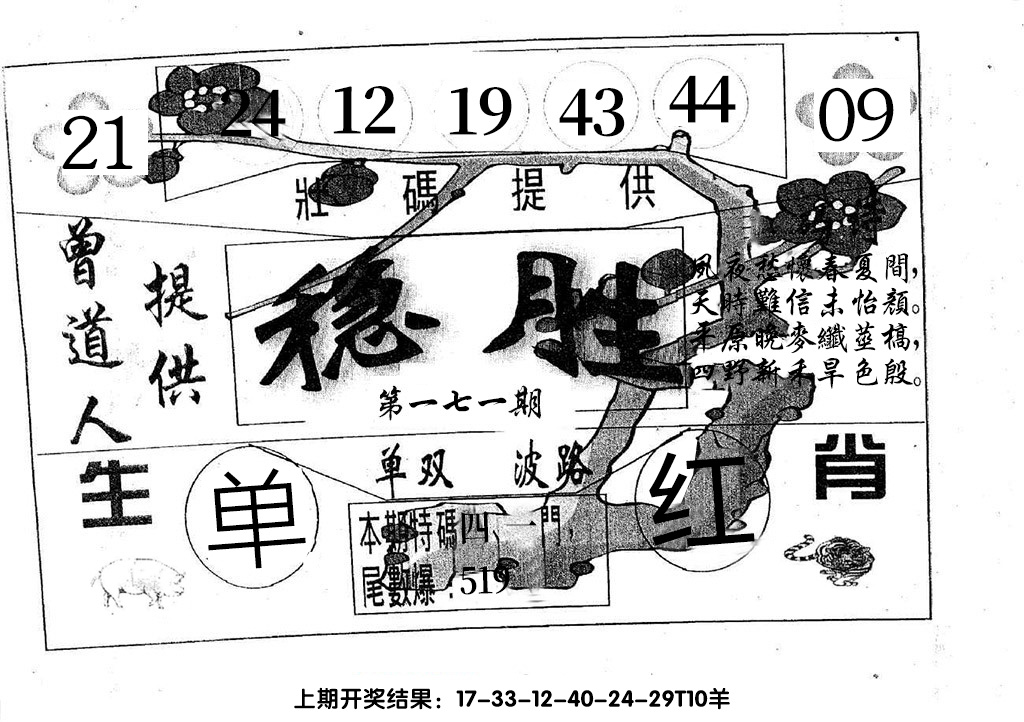 21 24 12 19 43 44 09
壯碼提供
曾道人
提供
稳胜
第一七一期
夙夜愁懷春夏間，
天時難信未怡顏。
平原晚麥纖莖槁，
四野新禾旱色殷。
单双 波路
生肖
单
红
本期特碼四、一門，
尾數爆：519
上期开奖结果：17-33-12-40-24-29T10羊